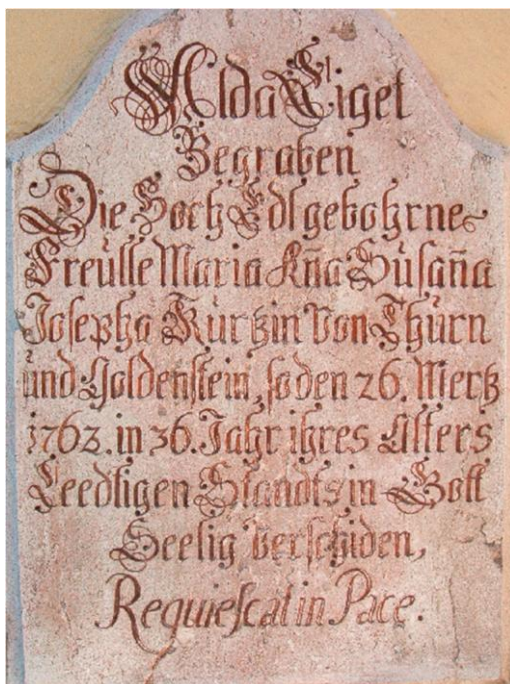 Alda Liget
Begraben
Die Hoch Edlgebohrne
Freülle Maria Añna Süsaña
Josepha Kürtzin Von Thürn
und Goldenstein, so den 26. Mertz
1762. in 36. Jahr ihres Alters
Leedligen Standts in Gott
Seelig verschiden,
Requiescat in Pace.